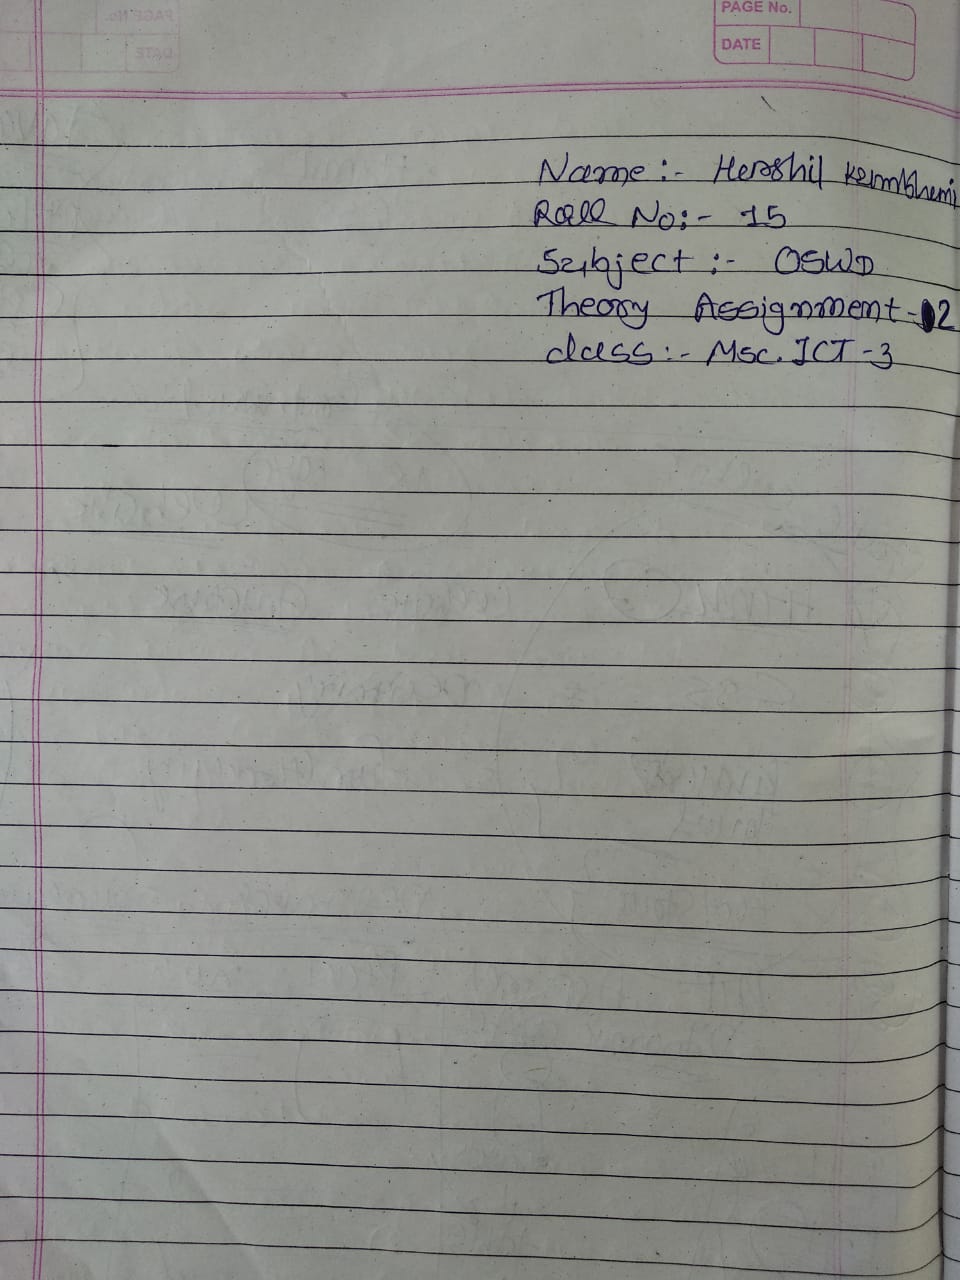 PAGE No.
DATE
Name :- Harshil Kambhani
Roll No:- 15
Subject :- OSWD
Theory Assignment-2
class :- Msc. ICT-3